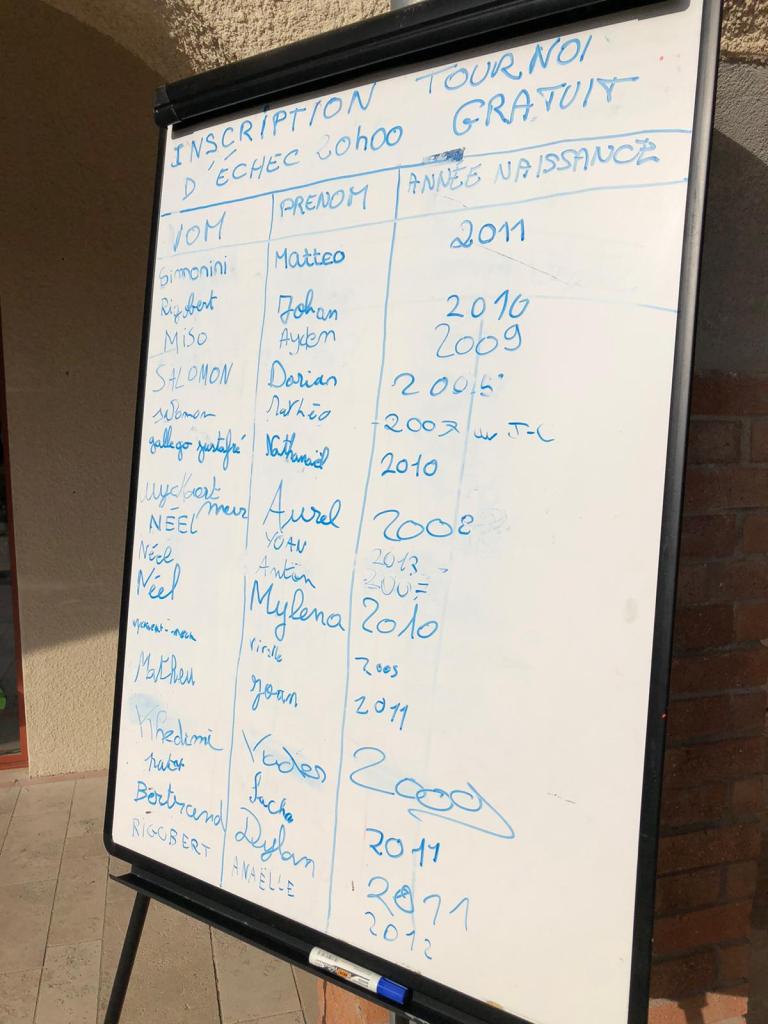 INSCRIPTION TOURNOI
D'ÉCHEC 20h00 GRATUIT
NOM PRENOM ANNÉE NAISSANCE
Simonini Matteo 2011
Rigobert Johan 2010
Miso Ayden 2009
SALOMON Dorian 2005
salomon Mathéo -2007 J-C
gallego Nathanaël 2010
Aurel 2008
NÉEL YOAN 2013
Néel Anton 2007
Néel Mylena 2010
2009
Matheu Joan 2011
Khedimi 2009
Sacha 2011
Bertrand Dylan 2011
RIGOBERT ANAËLLE 2012